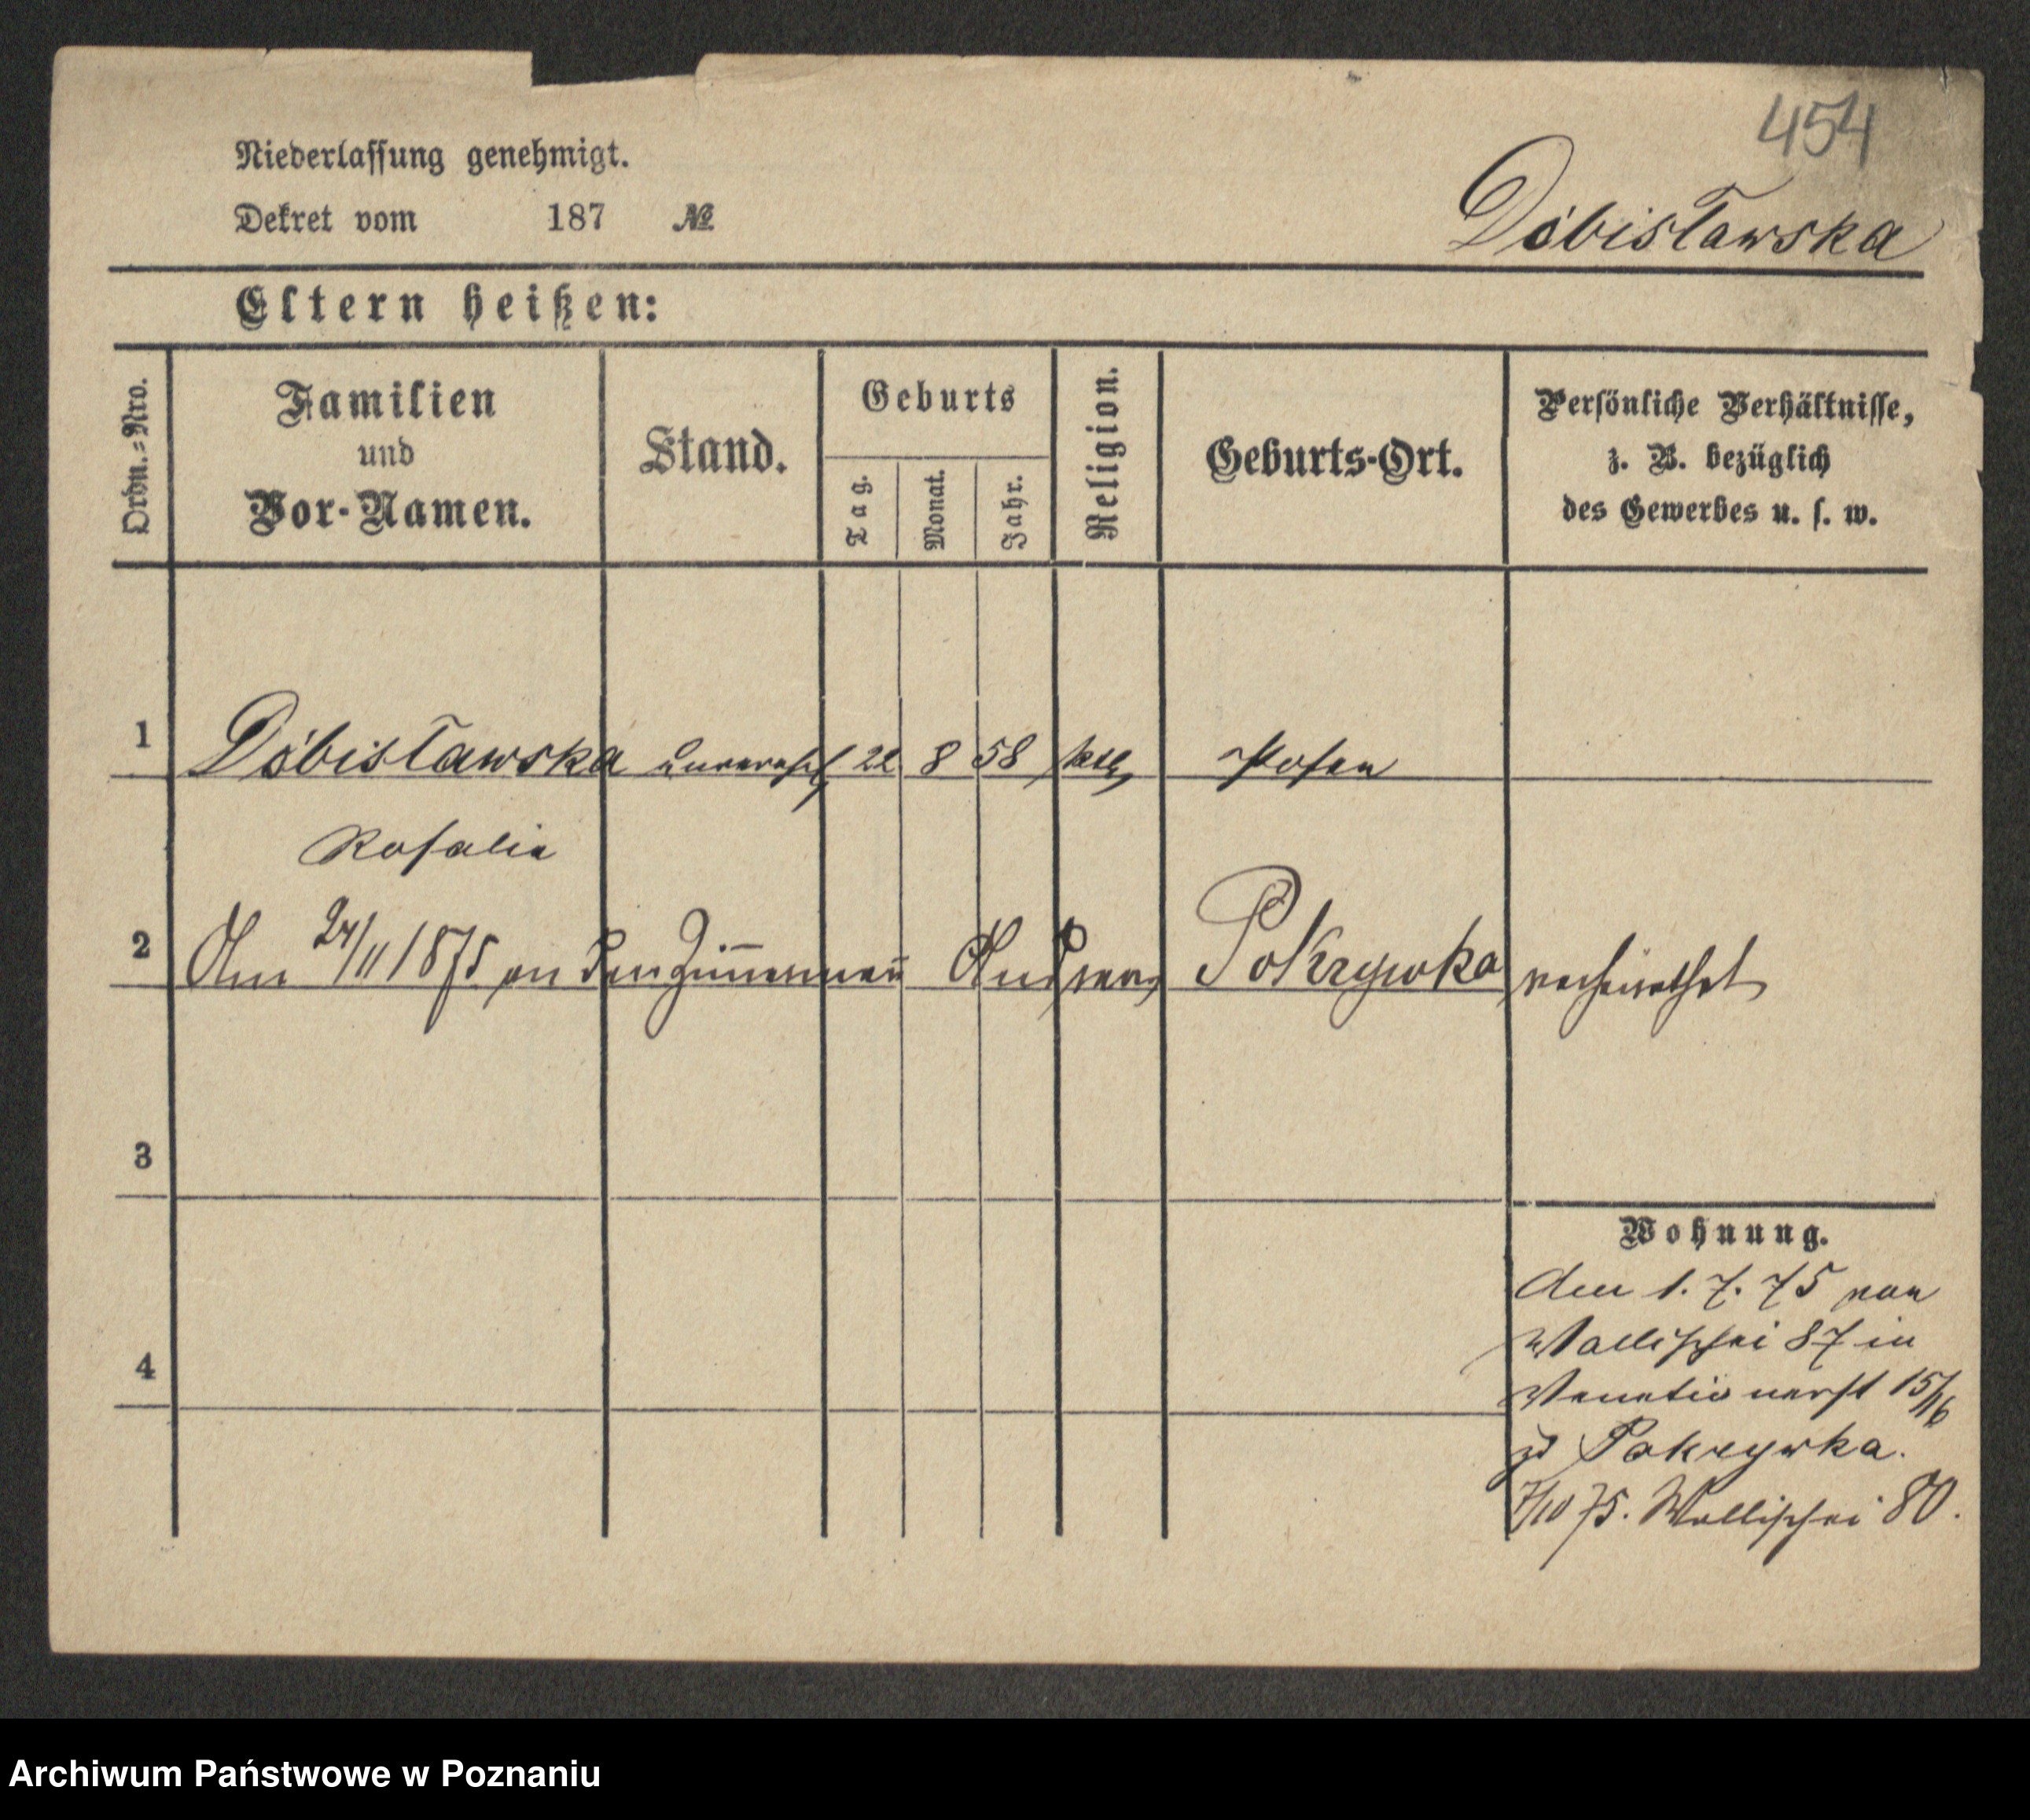 454
Niederlassung genehmigt.
Dekret vom 187 №
Dóbisławska
Eltern heißen:
Ordn.=Nro.
Familien und Vor-Namen.
Stand.
Geburts
Tag.
Monat.
Jahr.
Religion.
Geburts-Ort.
Persönliche Verhältnisse,
z. B. bezüglich
des Gewerbes u. s. w.
1 Dóbisławska unverehl 22 8 58 kth Posen
Rosalie
2 Am 24/11 1875 an den Zimmermann Andreas Pokrzywka verheirathet
3
4
Wohnung.
Am 1. 7. 75 von
Wallischei 87 in
Venetianerst 15/16
zu Pokrzywka.
7/10 75. Wallischei 80.
Archiwum Państwowe w Poznaniu